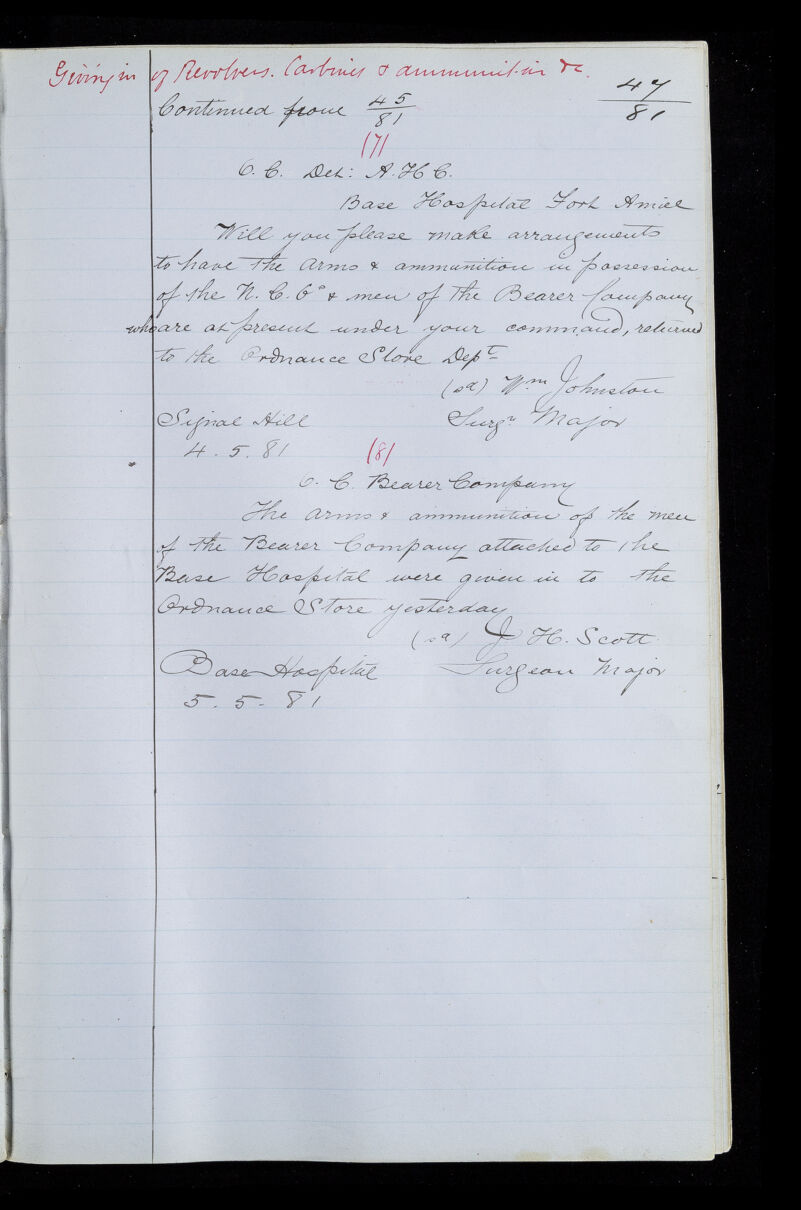 Giving in of Revolvers. Carbines & ammunition &c.
47/81
Continued from 45/81
(7)
O. C. Det: A. H C.
Base Hospital Fort Amiel
Will you please make arrangements
to have the arms & ammunition in possession
of the N. C. Os & men of the Bearer Company
who are at present under your command, returned
to the Ordnance Store Dept
(sd) Wm Johnston
Signal Hill Surgn Major
4. 5. 81
(8)
O. C. Bearer Company
The arms & ammunition of the men
of the Bearer Company attached to the
Base Hospital were given in to the
Ordnance Store yesterday
(sd) J H. Scott
Base Hospital Surgeon Major
5. 5. 81